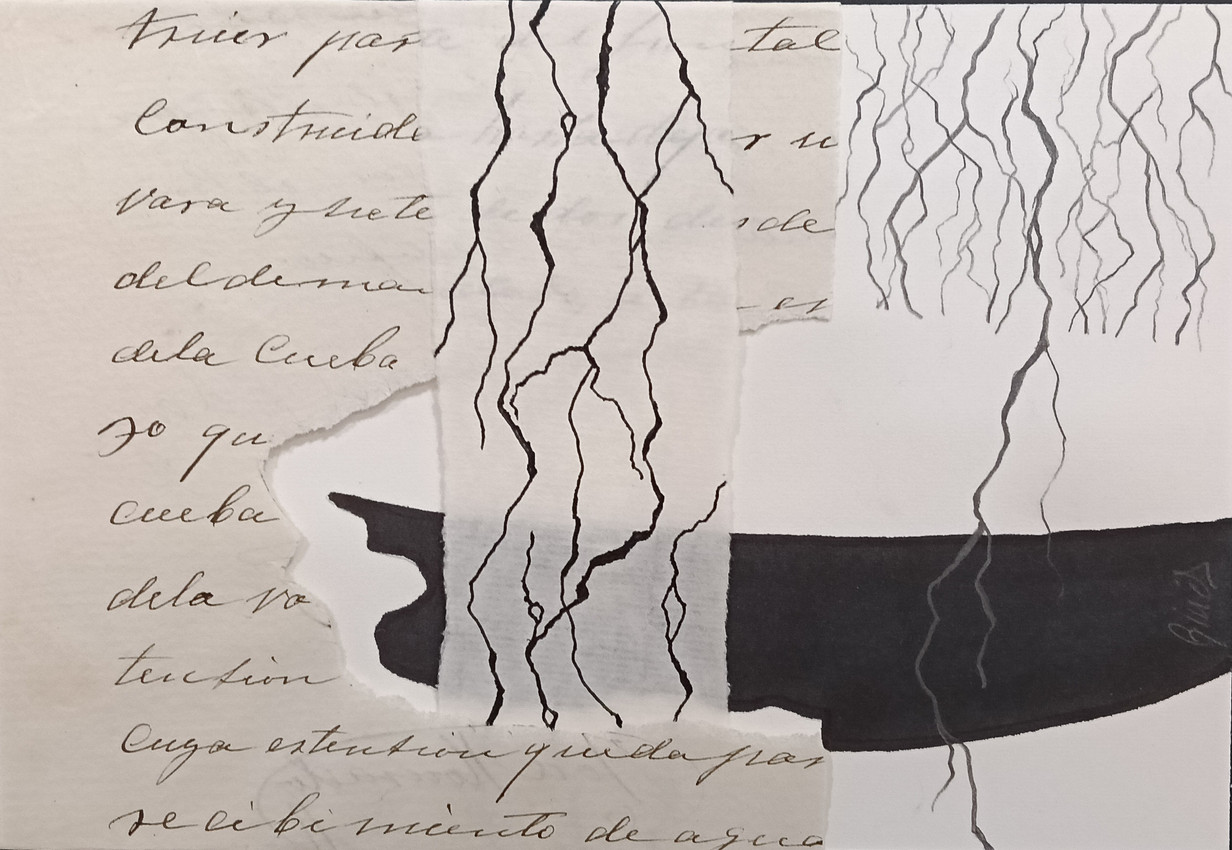 par tal
Construida r u
vara y siete sde
del de mar en
dela Cueba
so qu
cueba
dela va
tension
Cuya estension queda par
recibimiento de agua